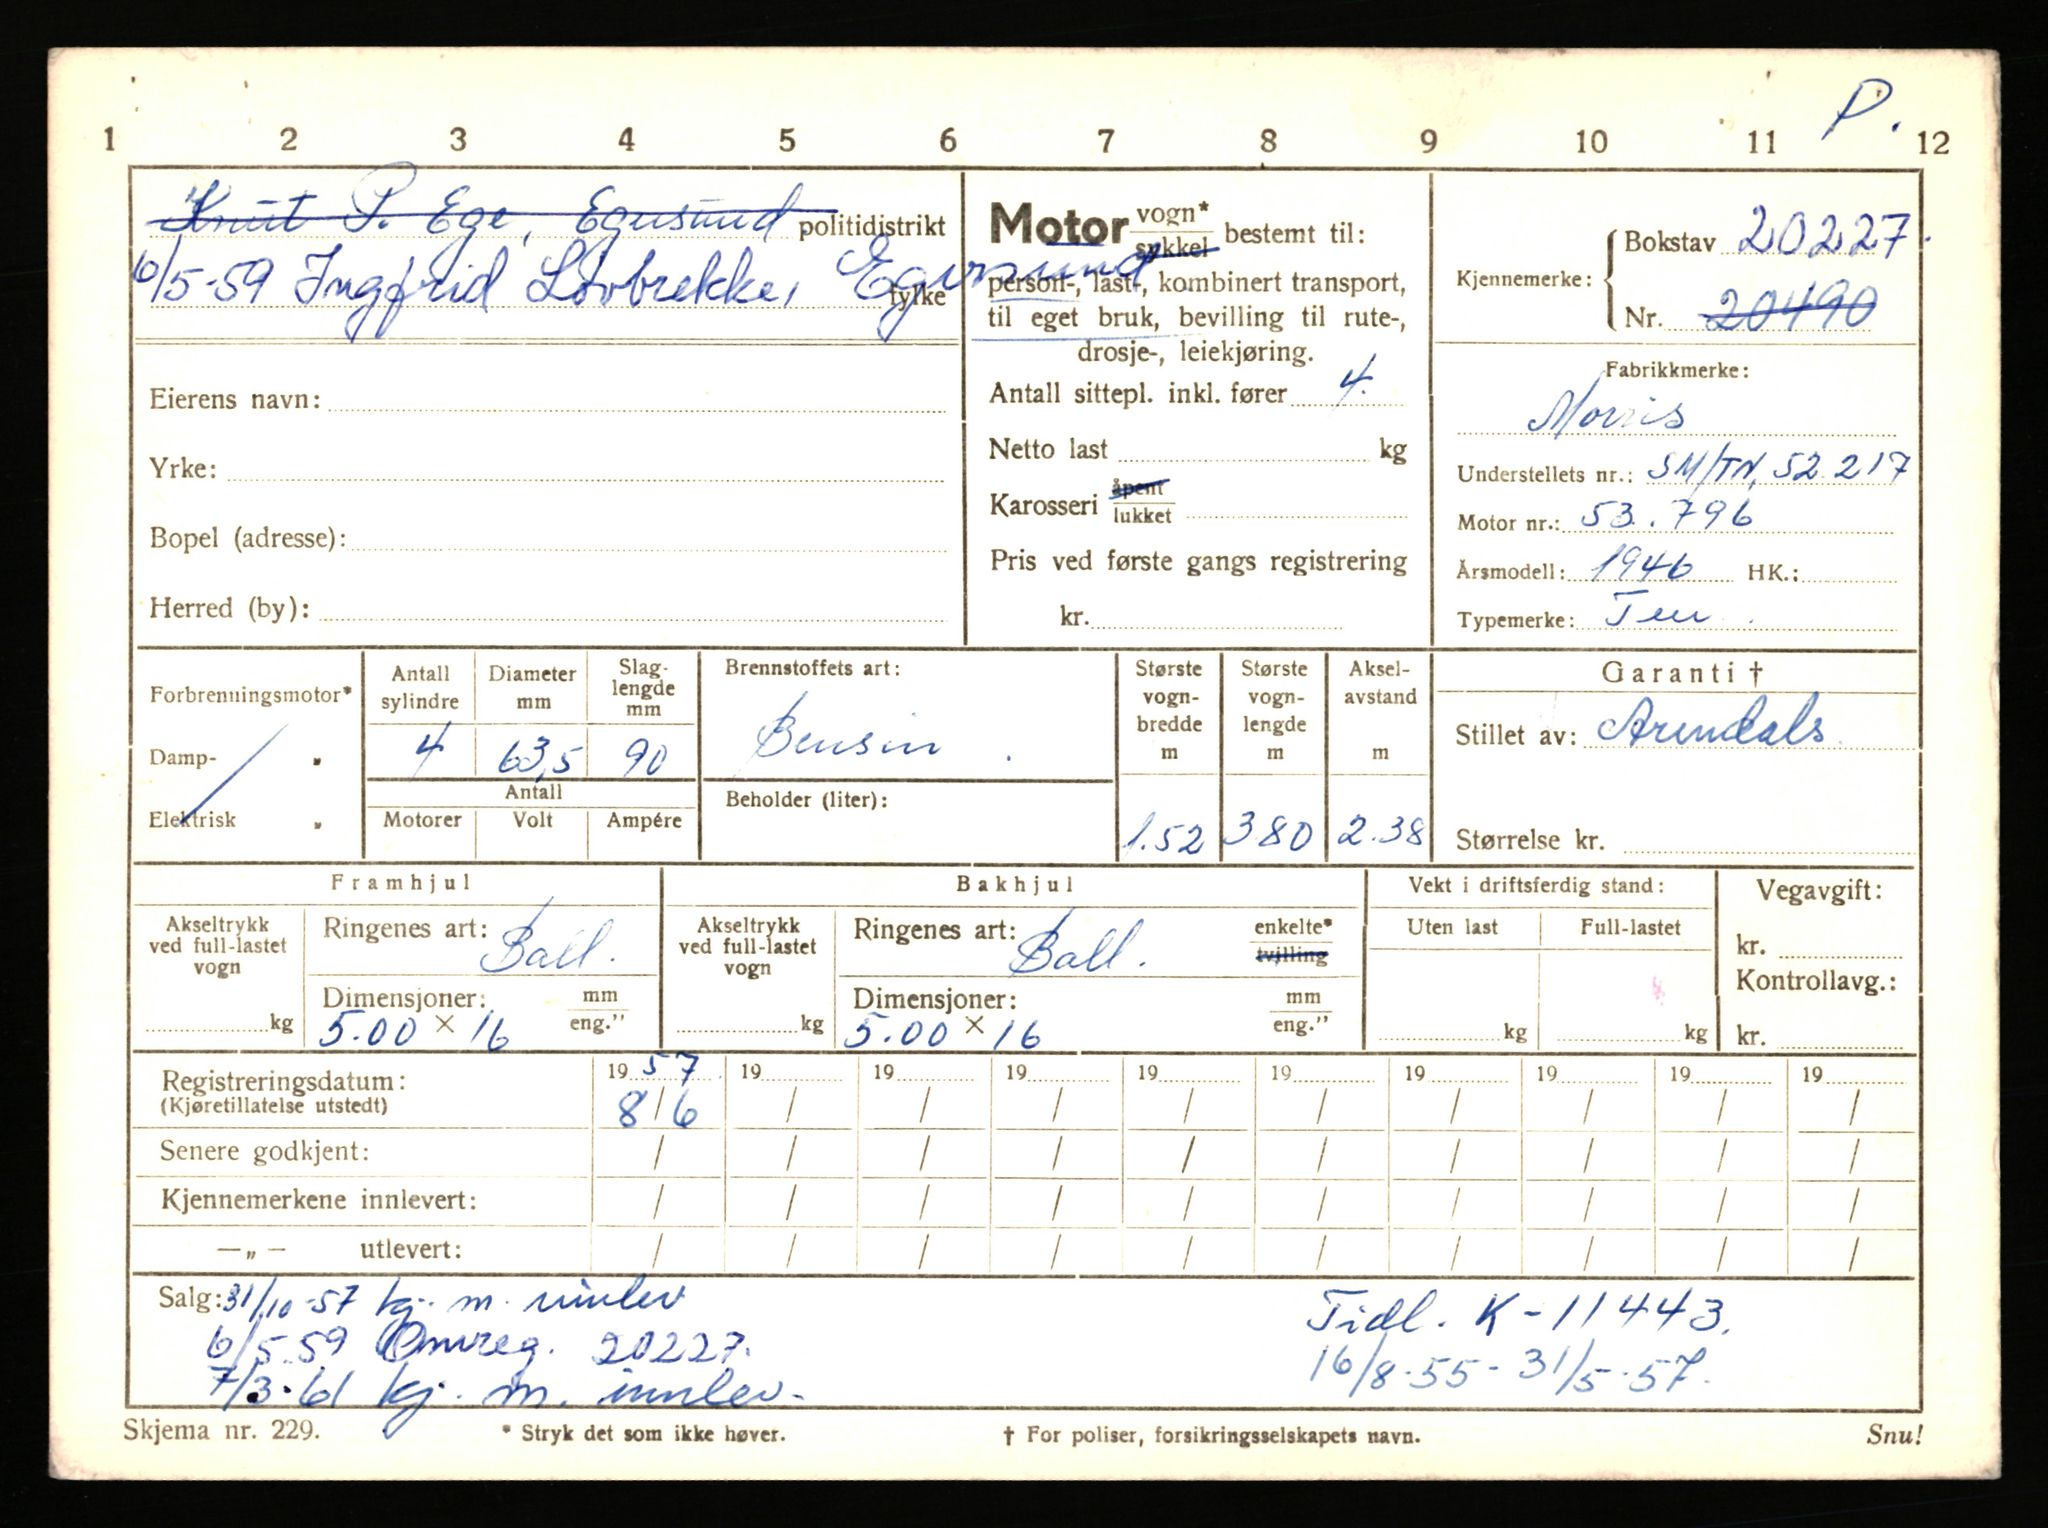 P.
1 2 3 4 5 6 7 8 9 10 11 12
Knut P. Ege, Egersund politidistrikt
6/5-59 Ingfrid Lovbrekke, Egersund fylke
Eierens navn:
Yrke:
Bopel (adresse):
Herred (by):
Motor vogn* sykkel bestemt til:
person-, last-, kombinert transport,
til eget bruk, bevilling til rute-,
drosje-, leiekjøring.
Antall sittepl. inkl. fører 4.
Netto last kg
Karosseri åpent lukket
Pris ved første gangs registrering
kr.
Kjennemerke: Bokstav 20227.
Nr. 20490
Fabrikkmerke:
Morris
Understellets nr.: SM/TN. 52.217
Motor nr.: 53.796
Årsmodell: 1946 HK.:
Typemerke: Ten.
Forbrenningsmotor*
Damp- "
Elektrisk "
Antall sylindre Diameter mm Slag-lengde mm
4 63,5 90
Antall
Motorer Volt Ampére
Brennstoffets art:
Bensin.
Beholder (liter):
Største vogn-bredde m Største vogn-lengde m Aksel-avstand m
1.52 380 2.38
Garanti †
Stillet av: Arendals
Størrelse kr.
Framhjul
Akseltrykk ved full-lastet vogn
kg
Ringenes art: Ball.
Dimensjoner: mm eng."
5.00 × 16
Bakhjul
Akseltrykk ved full-lastet vogn
kg
Ringenes art: Ball. enkelte* tvilling
Dimensjoner: mm eng."
5.00 × 16
Vekt i driftsferdig stand:
Uten last Full-lastet
kg kg
Vegavgift:
kr.
Kontrollavg.:
kr.
Registreringsdatum: 1957 19 19 19 19 19 19 19 19 19
(Kjøretillatelse utstedt) 8/6 / / / / / / / / /
Senere godkjent: / / / / / / / / / /
Kjennemerkene innlevert: / / / / / / / / / /
—„— utlevert: / / / / / / / / / /
Salg: 31/10-57 kj. m. innlev
6/5.59 Omreg. 20227.
7/3.61 kj. m. innlev.
Tidl. K-11443.
16/8.55 - 31/5.57.
Skjema nr. 229. * Stryk det som ikke høver. † For poliser, forsikringsselskapets navn. Snu!